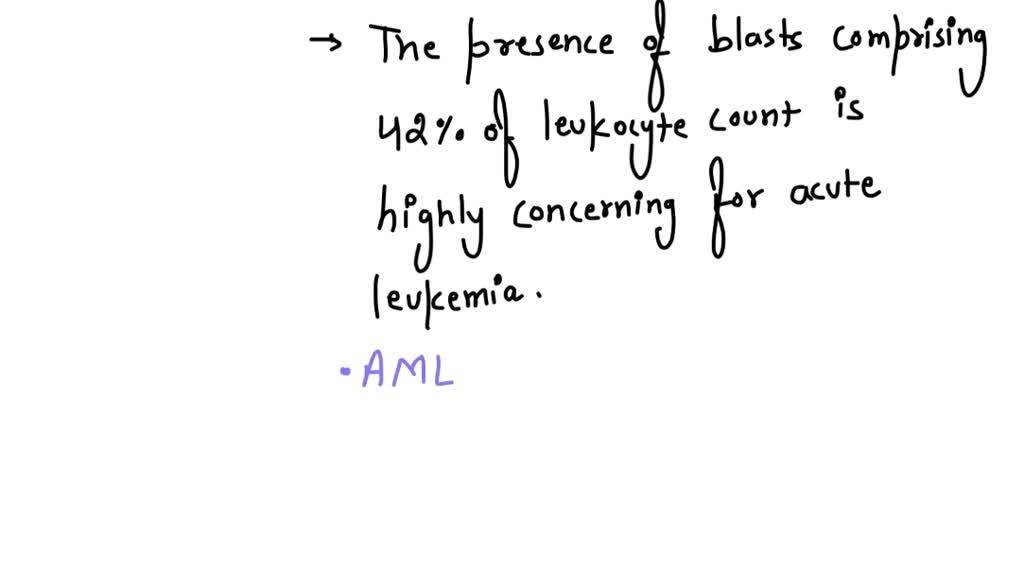 → The presence of blasts comprising
42% of leukocyte count is
highly concerning for acute
leukemia.
• AML